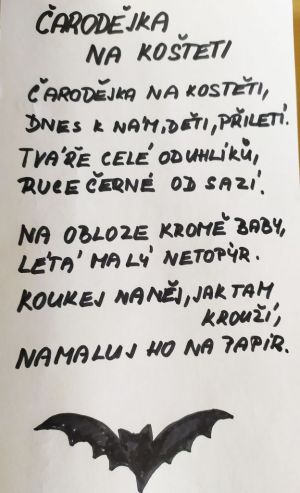 ČARODĚJKA
NA KOŠTĚTI
ČARODĚJKA NA KOSTĚTI,
DNES K NÁM, DĚTI, PŘILETÍ.
TVÁŘE CELÉ OD UHLÍKŮ,
RUCE ČERNÉ OD SAZÍ.
NA OBLOZE KROMĚ BABY,
LÉTÁ MALÝ NETOPÝR.
KOUKEJ NA NĚJ, JAK TAM
KROUŽÍ,
NAMALUJ HO NA PAPÍR.